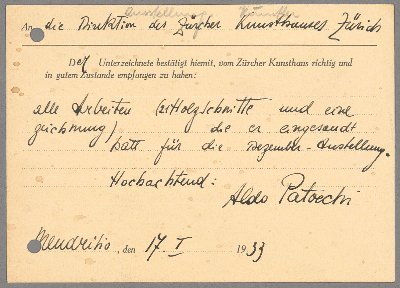 Ausstellung Künstler
An die Direktion des Zürcher Kunsthauses Zürich
Der Unterzeichnete bestätigt hiemit, vom Zürcher Kunsthaus richtig und
in gutem Zustande empfangen zu haben:
alle Arbeiten (21 Holzschnitte und eine
zeichnung) die er eingesandt
hatt für die Dezember-Austellung.
Hochachtend:
Aldo Patocchi
Mendrisio, den 17. I 1933